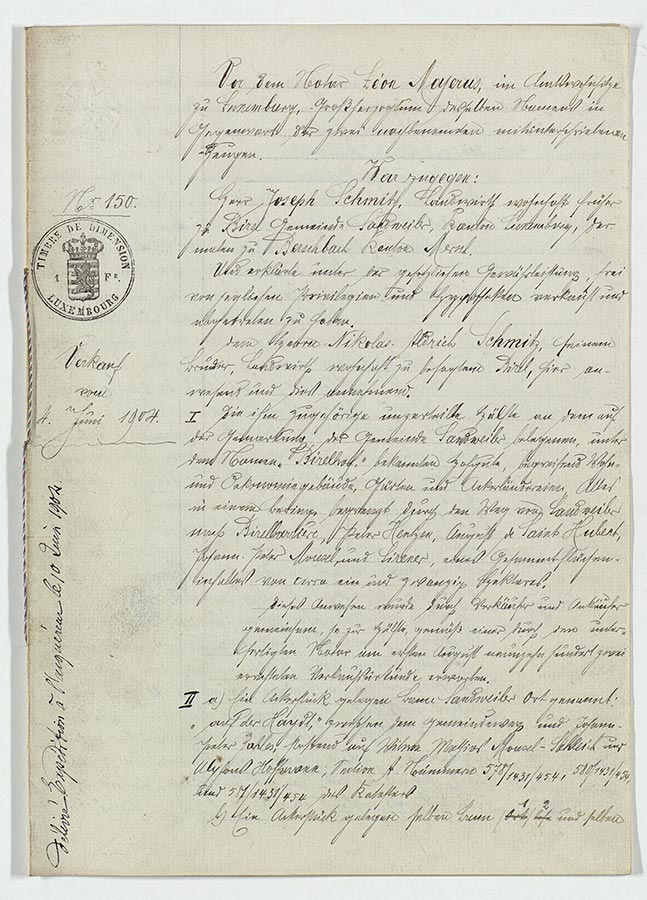 Vor dem Notar Léon Majerus, im Amtswohnsitze
zu Luxemburg, Großherzogtum desselben Namens in
Gegenwart der zwei nachbenannten mitunterschriebenen
Zeugen.
War zugegen:
Nr 150.
Herr Joseph Schmitz, Landwirt wohnhaft früher
zu Birel Gemeinde Sandweiler, Kanton Luxemburg, der-
malen zu Berschbach Kanton Mersch.
TIMBRE DE DIMENSION
1 Fr.
LUXEMBOURG
Und erklärte unter der gesetzlichen Gewährleistung, frei
von jeglichen Privilegien und Hypotheken verkauft und
abgetreten zu haben,
dem Herrn Nikolas Schmitz, seinem
Bruder, Landwirt wohnhaft zu besagtem Birel, hier an-
wesend und dies annehmend.
Verkauf
vom
4. Juni 1904.
I Die ihm zugehörige unzerteilte Hälfte an dem auf
der Gemarkung der Gemeinde Sandweiler belegenen, unter
dem Namen „Birelhof“ bekannten Hofgute, begreifend Wohn-
und Oekonomiegebäude, Gärten und Ackerländereien, Alles
in einem begrenzt durch den Weg von Sandweiler
nach Birelbarrière, Peter Hentzen, August de Saint Hubert,
Johann Peter Mousel und, eines Gesammtflächen-
inhaltes von circa ein und zwanzig Hektares.
Dieses Anwesen wurde durch Verkäufer und Ankäufer
gemeinsam, je zur Hälfte, gemäß einer durch den unter-
fertigten Notar am ersten August neunzehnhundert zwei
errichteten Verkaufsurkunde erworben.
II a) Ein Ackerstück gelegen Bann Sandweiler Ort genannt:
„auf der Haydt“ zwischen dem Gemeindeweg und Johann-
Peter, stoßend auf Mathias Mousel- und
Alphons Hoffmann, Section A Nummern 578/1431/454, 580/1431/454,
und 581/1431/454 des Katasters
b) Ein Ackerstück gelegen selben Bann und selben
Délivré Expédition à Acquéreur le 10 Juin 1904